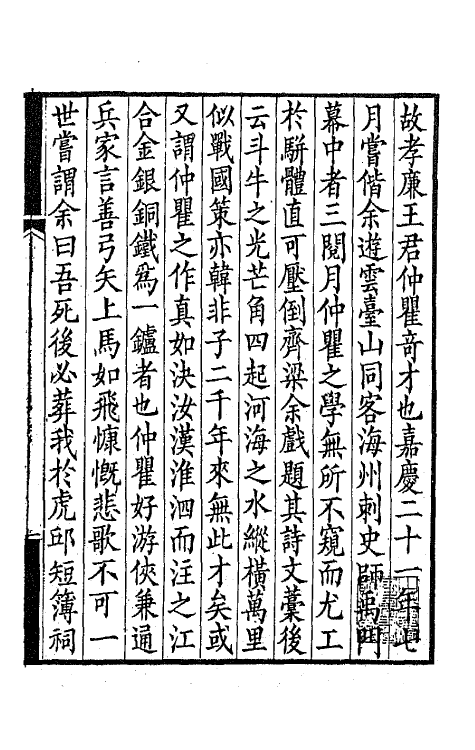 故孝廉王君仲瞿奇才也嘉慶二十一年七
月嘗偕余遊雲臺山同客海州刺史師禹門
幕中者三閱月仲瞿之學無所不窺而尤工
於駢體直可壓倒齊梁余戲題其詩文藁後
云斗牛之光芒角四起河海之水縱橫萬里
似戰國策亦韓非子二千年來無此才矣或
又謂仲瞿之作真如決汝漢淮泗而注之江
合金銀銅鐵爲一鑪者也仲瞿好游俠兼通
兵家言善弓矢上馬如飛慷慨悲歌不可一
世嘗謂余曰吾死後必葬我於虎邱短簿祠